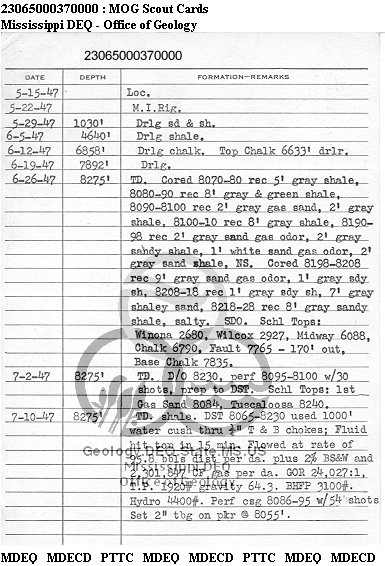 23065000370000 : MOG Scout Cards
Mississippi DEQ - Office of Geology
23065000370000
DATE DEPTH FORMATION—REMARKS
5-15-47 Loc.
5-22-47 M.I.Rig.
5-29-47 1030' Drlg sd & sh.
6-5-47 4640' Drlg shale.
6-12-47 6858' Drlg chalk. Top Chalk 6633' drlr.
6-19-47 7892' Drlg.
6-26-47 8275' TD. Cored 8070-80 rec 5' gray shale,
8080-90 rec 8' gray & green shale,
8090-8100 rec 2' gray gas sand, 2' gray
shale, 8100-10 rec 8' gray shale, 8190-
98 rec 2' gray sand gas odor, 2' gray
sandy shale, 1' white sand gas odor, 2'
gray sand shale, NS. Cored 8198-8208
rec 9' gray sand gas odor, 1' gray sdy
sh, 8208-18 rec 1' gray sdy sh, 7' gray
shaley sand, 8218-28 rec 8' gray sandy
shale, salty. SDO. Schl Tops:
Winona 2680, Wilcox 2927, Midway 6088,
Chalk 6790, Fault 7765 - 170' out,
Base Chalk 7835.
7-2-47 8275' TD. D/O 8230, perf 8095-8100 w/30
shots, prep to DST. Schl Tops: 1st
Gas Sand 8084, Tuscaloosa 8240.
7-10-47 8275' TD. shale. DST 8065-8230 used 1000'
water cush thru ½" T & B chokes; Fluid
hit top in 15 min. Flowed at rate of
95.8 bbls dist per da. plus 2% BS&W and
2,301,847 CF gas per da. GOR 24,027:1.
T.P. 1920# gravity 64.3. BHFP 3100#.
Hydro 4400#. Perf csg 8086-95 w/54 shots
Set 2" tbg on pkr @ 8055'.
Geology.DEQ.State.MS.US
Mississippi DEQ
Office of Geology
MDEQ MDECD PTTC MDEQ MDECD PTTC MDEQ MDECD